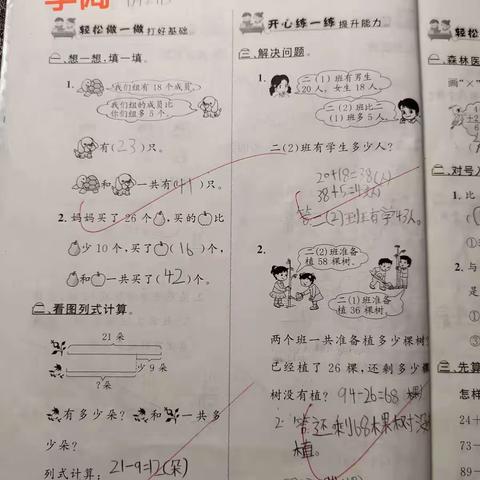 轻松做一做 打好基础。
一、想一想,填一填。
1.
我们组有 18 个成员。
我们组的成员比
你们组多 5 个。
有(23)只。
和 一共有(41)只。
2. 妈妈买了 26 个 ,买的 比
少 10 个,买了 (16)个,
和 一共买了(42)个。
二、看图列式计算。
21 朵
少 9 朵
?朵
有多少朵? 和 一共多
少朵?
列式计算: 21-9=12(朵)
开心练一练 提升能力。
三、解决问题。
1.
二(1)班有男生
20 人,女生 18 人。
二(2)班比二
(1)班多 5 人。
二(2)班有学生多少人?
20+18=38(人)
38+5=43(人)
答:二(2)班有学43人。
2.
二(2)班准备
植 58 棵树。
二(1)班准备
植 36 棵树。
两个班一共准备植多少棵树
已经植了 26 棵,还剩多少棵
树没有植? 94-26=68
答还剩68棵树没
植。
轻松
一、森林医
画"×"
二、对号入
1. 比
①
2. 与
是
①
③
三、先算
怎样
24+
73-
89-